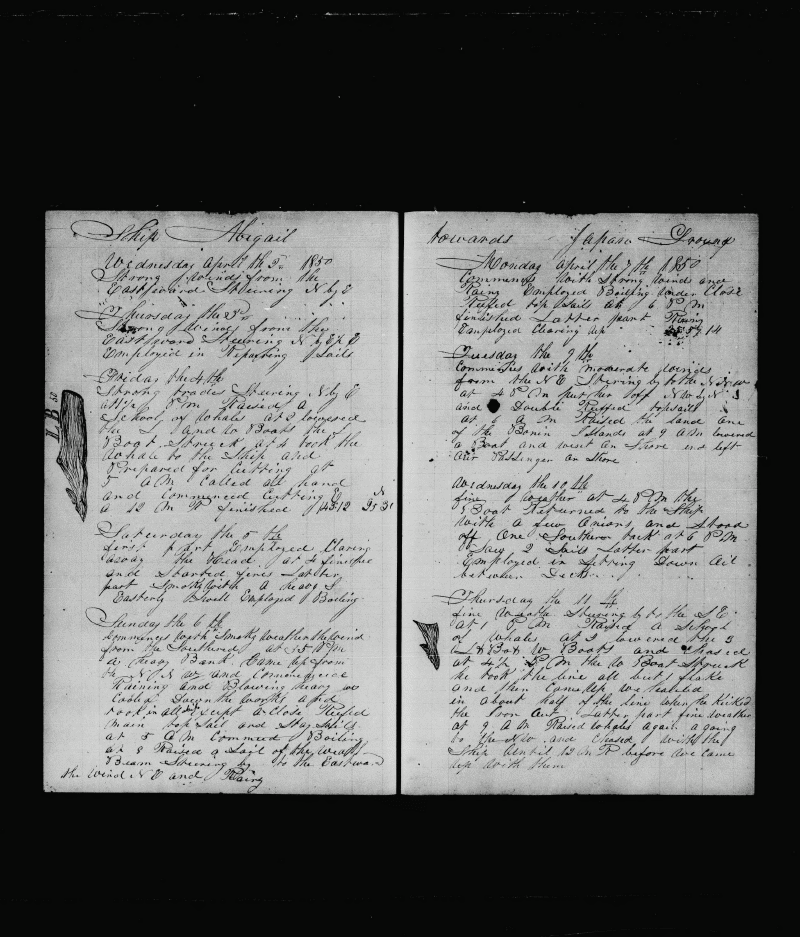 Ship Abigail
Wednesday april th 3d 1850
Strong winds from the
Eastward Steering N by E
Thursday the 3d
Strong Winds from the
Eastward Steering N by E & E
Employed in Repairing Sails
Friday the 4th
Strong trades Steering N by E
at 1½ P M Raised a
School of whales at 2 lowered
the S and W Boats the S
Boat Struck at 4 took the
whale to the Ship and
Prepared for Cutting at
5 A M Called all hand
and Commenced Cutting
a 12 M finished
LB 50
Saturday the 5th
first part Employed Claring
away the Head at 4 finished
and Started fires Latter
part Smoky with A heavy
Easterly Swell Employed Boiling
Sunday the 6th
Commences with Smoky weather the wind
from the Southered at 3.5 P M
a heavy Bank Came up from
the N N W and Commence
Raining and Blowing heavy we
Cooled Down the works and
took in all Except a Close Reefed
main top Sail and Stay Sails
at 5 A M Commenced Boiling
at 8 Raised a Sail of the weather
Beam Steering by to the Eastward
the wind N E and Rainy
towards Japan Ground
Monday april the 7th 1850
Commences with Strong wind and
Rainy Employed Boiling under Close
Reefed top Sail at 6 P M
finished Latter part Rainy
Employed Claring up
Tuesday the 9th
Commences with moderate winds
from the N E Stering by to the N N W
at 4 P M
and Double Reffed topsail
at 6 A M Raised the land one
of the Bonin Islands at 9 A M lowered
a Boat and went on Shore and left
our Passinger on Shore
Wednesday the 10th
fine Weather at 4 P M the
Boat Returned to the Ship
with a few Onions and Stood
off One Southern tack at 6 P M
Saw 2 Sails Latter part
Employed in Setting Down Oil
between Decks
Thursday the 11th
fine Weather Steering by to the S E
at 1 P M Raised a School
of whales at 2 lowered the 3
L & Bo & W Boats and Chased
at 4½ P M the W Boat Struck
he took the line all but 1 flake
and then Comdeth we hauled
in about half of the line when he Kicked
the Iron Out Latter part fine weather
at 9 A M Raised whales again a going
to the N W and Chased with the
Ship Until 12 M before we Came
up with them